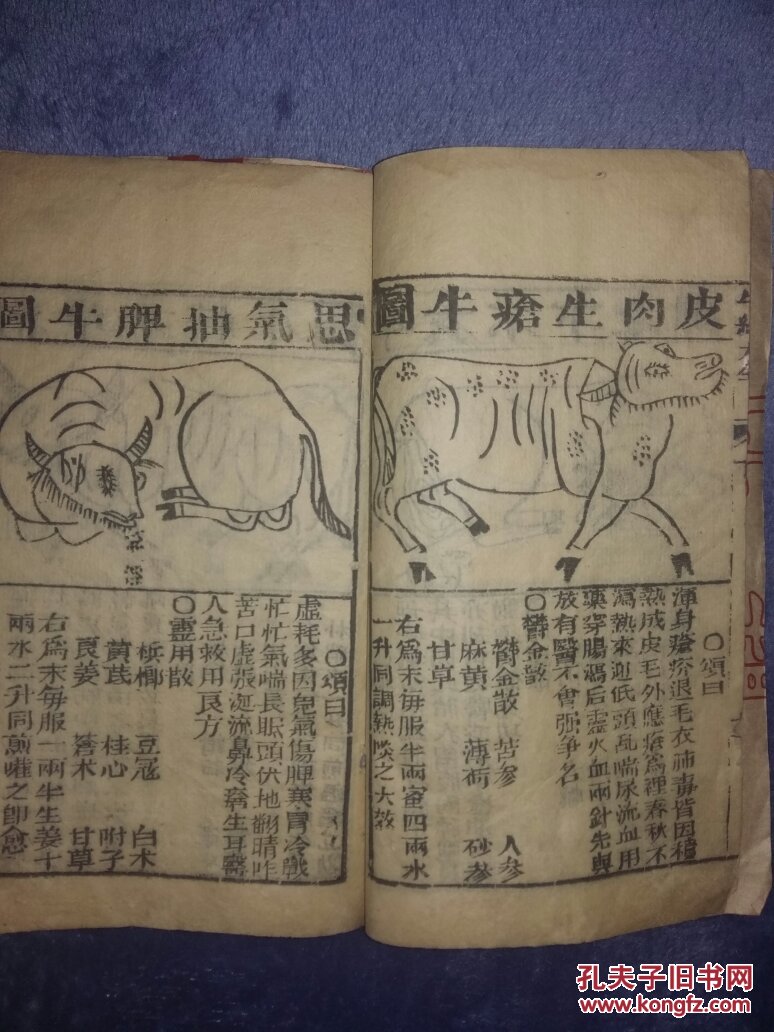 皮肉生瘡牛圖
○頌曰
渾身瘡疥退毛衣肺毒皆因積
熱成皮毛外應瘡為裡春秋不
瀉熱來迎低頭亂喘尿流血用
藥穿腸瀉后靈火血兩針先與
放有醫不會强争名
○鬱金散
鬱金散 苦参 人参
麻黄 薄荷 砂参
甘草
右爲末每服半兩蜜四兩水
一升同調熱啖之大效
思氣抽脾牛圖
○頌曰
虛耗多因兒氣傷脾寒胃冷戰
忙忙氣喘長眠頭伏地翻睛咋
苦口虛張涎流鼻冷瘡生耳醫
人急救用良方
○靈用散
梹榔 豆冠 白术
黄芪 桂心 附子
良姜 蒼术 甘草
右爲末每服一兩半生姜十
兩水二升同煎嚾之即愈
孔夫子旧书网
www.kongfz.com